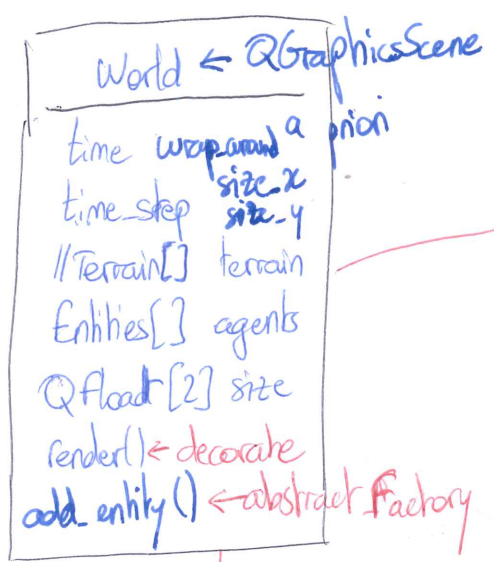 World ← QGraphicsScene
time wrap_around a priori
size_x
time_step size_y
//Terrain[] terrain
Entities[] agents
QFloat[2] size
render() ← decorate
add_entity() ← abstract Factory